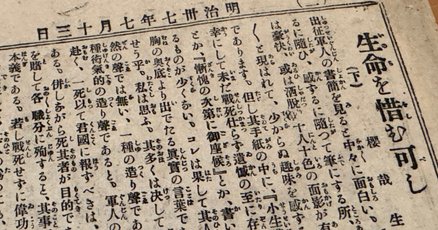 明治卅七年七月十三日
生命を惜む可し
(下)
櫻哉生
出征軍人の書簡を見ると中々に面白い。
るに隨ひ、感ずるに隨つて筆にする所、
十人十色の面影が有
は豪快、或は洒脱、少からぬ趣味を感
く現はれて、
手紙の中に、『小生
であります。但し
幸にして未だ戰死に至らず遺憾の至に存
とか『慚愧の次第に御座候』とか、書い
るものが少くない。シレは果して其人
胸の奥底より出でたる眞實の言葉で
せう乎。私は思ふ、其多くは決して
然の聲では無い、一種の造り聲であ
種術氣的の造り聲であると。軍人の
赴く、一死以て君國に報ずべきは、
ある。併しながら死其者が目的であ
を賭して各職分に殉ずると、其事
本義である。若し戰死せずに偉功